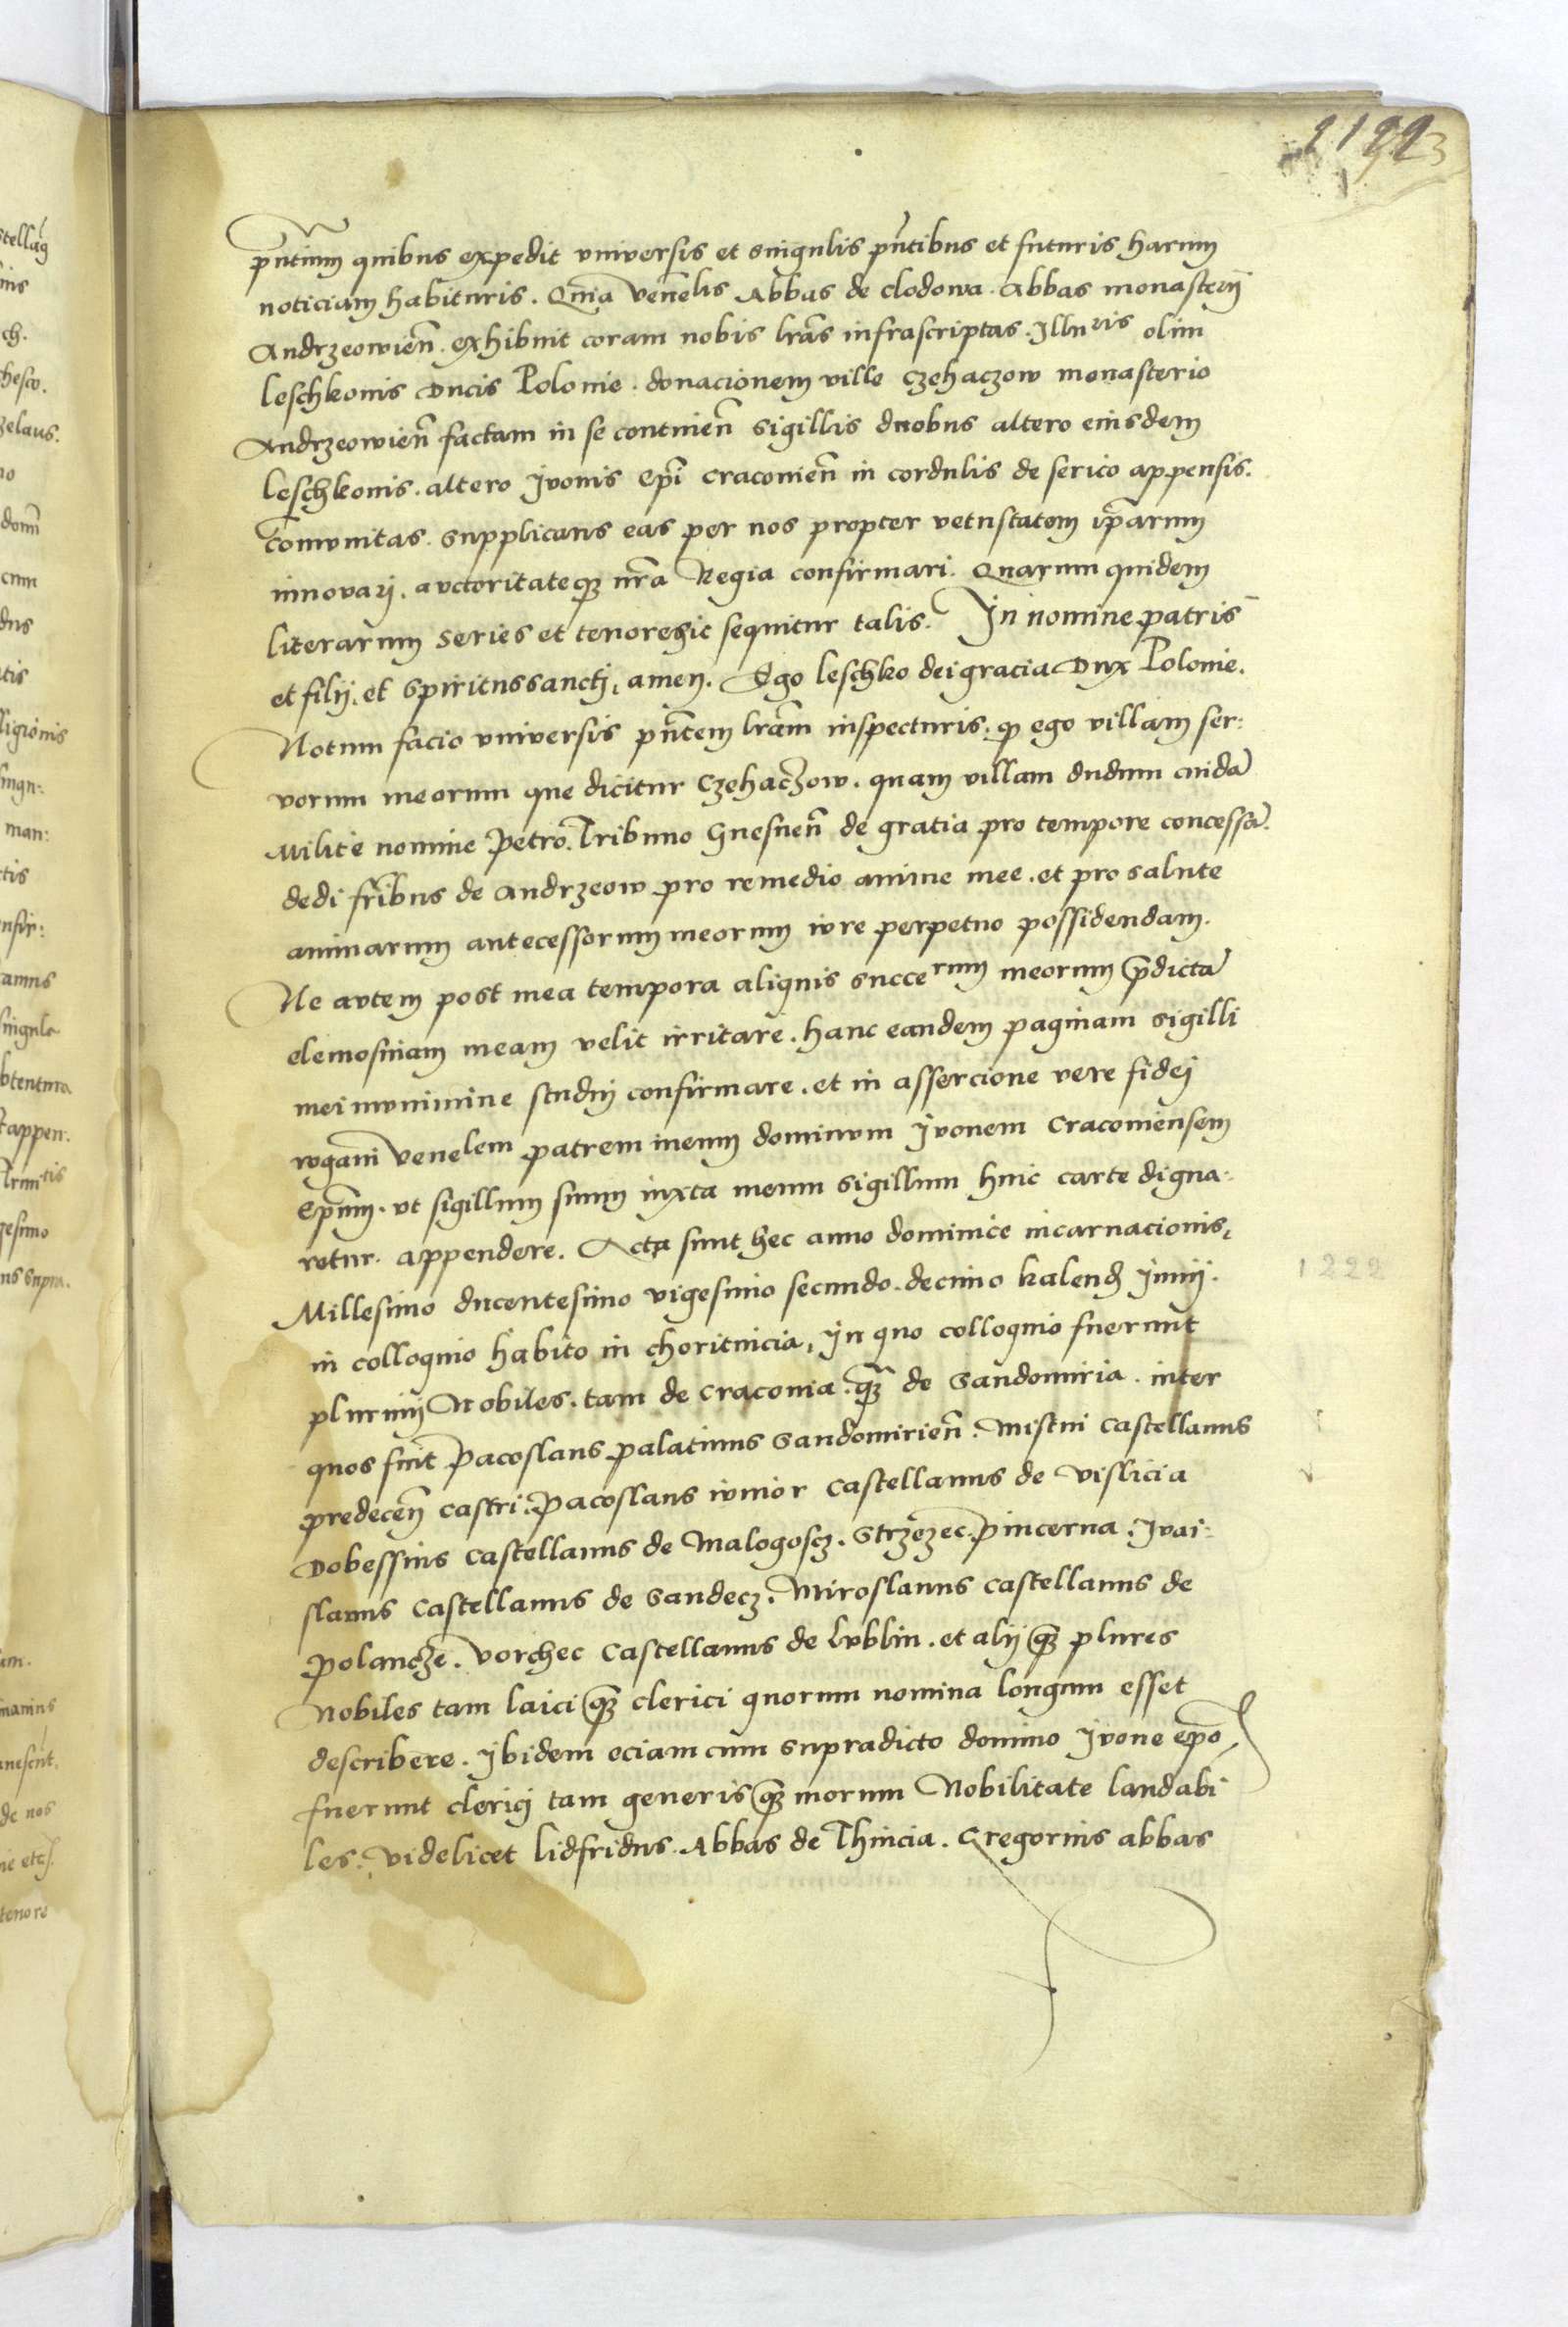 pñtium quibus expedit vniversis et singulis pñtibus et futuris harum
noticiam habituris. Quia Venelis Abbas de clodowa. Abbas monasterij
Andrzeowień. exhibuit coram nobis lras infrascriptas. Illuris olim
leschkonis Ducis Polonie. donacionem ville Czehaczow monasterio
Andrzeowień factam in se continen̄ sigillis duobus altero eiusdem
leschkonis. altero Ivonis Epi Cracovien̄ in cordulis de serico appensis.
comunitas. supplicans eas per nos propter vetustatem ip̄arum
innovari. auctoritateq3 nr̄a Regia confirmari. Quarum quidem
literarum series et tenor sic sequitur talis. In nomine patris
et filij. et spiritussancti, amen. Ego leschko dei gracia Dux Polonie.
Notum facio vniversis pñtem lram inspecturis. q ego villam ser:
vorum meorum que dicitur Czehaczow. quam villam dudum cuidā
Milite nomine Petro. Tribuno Gnesnen̄ de gratia pro tempore concessā.
dedi fribus de Andrzeow pro remedio anime mee. et pro salute
animarum antecessorum meorum iure perpetuo possidendam.
Ne autem post mea tempora aliquis succerum meorum p̄dictā
elemosinam meam velit irritare. hanc eandem paginam sigilli
mei munimine studui confirmare. et in assercione vere fidei
rogavi venelem patrem meum dominum Ivonem Cracoviensem
Ep̄um. ut sigillum suum iuxta meum sigillum huic carte digna:
retur. appendere. Acta sunt hec anno dominice incarnacionis,
Millesimo ducentesimo vigesimo secundo. decimo kalend Junij.
1222
in colloquio habito in choritnicia, In quo colloquio fuerunt
plurimi Nobiles. tam de Cracovia. q3 de Sandomiria. inter
quos fuit Pacoslaus palatinus Sandomirien̄. Mistui Castellanus
predecen̄ castri. Pacoslaus iunior Castellanus de Vislicia
Dobessius Castellanus de Malogoscz. Strzezec. pincerna. Ivai:
slaus Castellanus de Sandecz. Miroslauus Castellanus de
Polancze. Vorchec Castellanus de Lublin. et alij q3 plures
Nobiles tam laici q3 clerici quorum nomina longum esset
describere. Ibidem eciam cum supradicto domino Ivone ep̄o
fuerunt clerici tam generis q3 morum Nobilitate laudabi
les. Videlicet lidfridus. Abbas de Thincia. Gregorius abbas